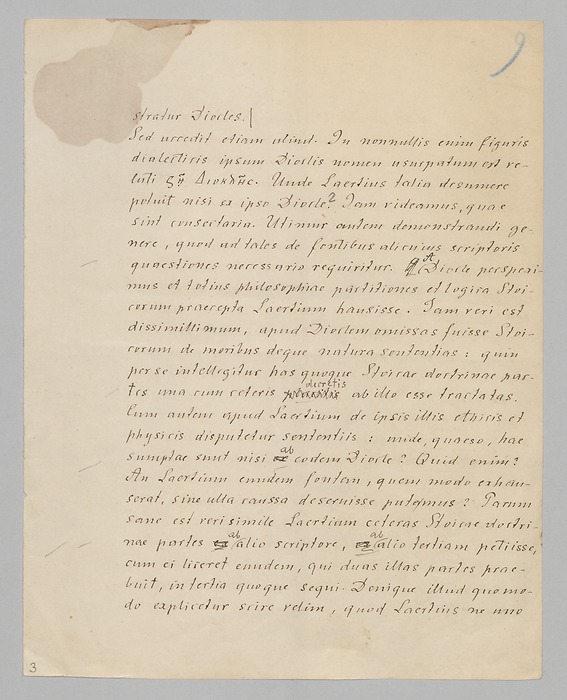 9
stratur Diocles.
Sed accedit etiam aliud. In nonnullis enim figuris
dialecticis ipsum Dioclis nomen usurpatum est ve-
luti ζῇ Διοκλῆς. Unde Laertius talia desumere
potuit nisi ex ipso Diocle? Iam videamus, quae
sint consectaria. Utimur autem demonstrandi ge-
nere, quod ad tales de fontibus alicuius scriptoris
quaestiones necessario requiritur. A Diocle perspexi-
mus et totius philosophiae partitiones et logica Stoi-
corum praecepta Laertium hausisse. Iam veri est
dissimillimum, apud Dioclem omissas fuisse Stoi-
corum de moribus deque natura sententias: quin
per se intellegitur has quoque Stoicae doctrinae par-
tes una cum ceteris decretis ab illo esse tractatas.
Cum autem apud Laertium de ipsis illis ethicis et
physicis disputetur sententiis: unde, quaeso, hae
sumptae sunt nisi ab eodem Diocle? Quid enim?
An Laertium eundem fontem, quem modo exhau-
serat, sine ulla caussa deseruisse putemus? Parum
sane est veri simile Laertium ceteras Stoicae doctri-
nae partes ab alio scriptore, ab alio tertiam petiisse,
cum ei liceret eundem, qui duas illas partes prae-
buit, in tertia quoque sequi. Denique illud quomo-
do explicetur scire velim, quod Laertius ne uno
3